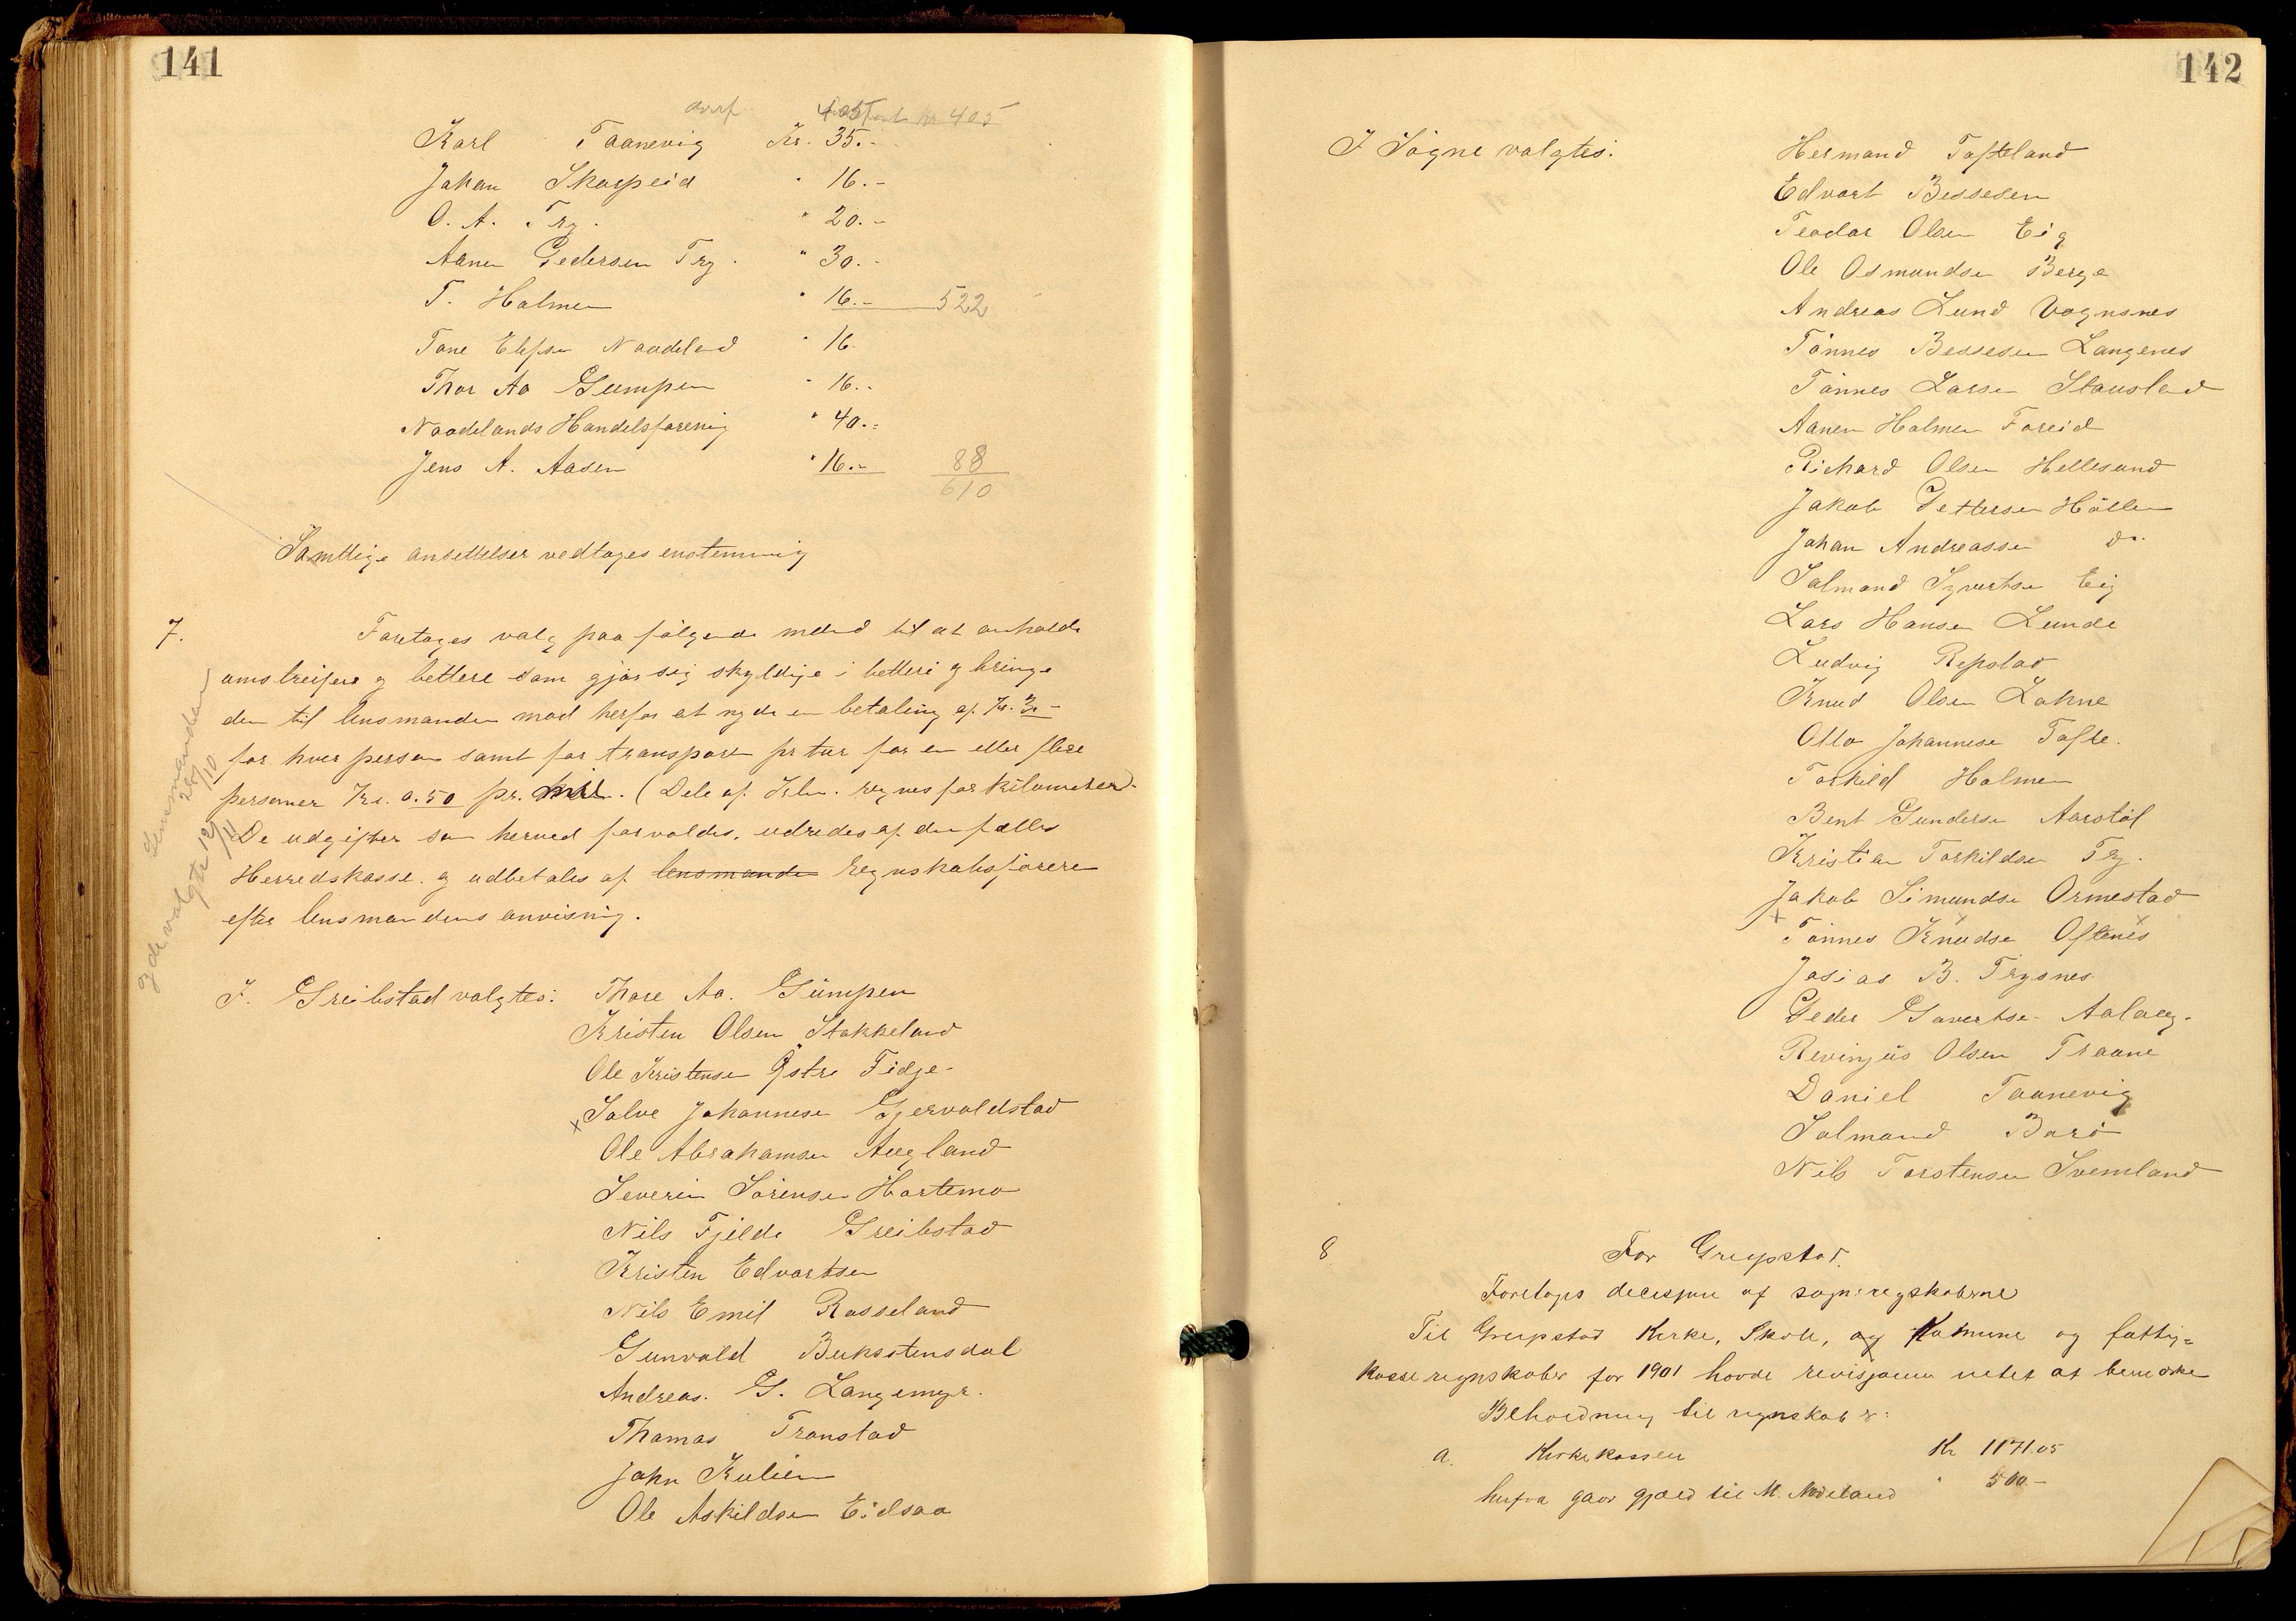 141
overf. 405 Trsprt kr 405
Karl Taanevig Kr. 35.-
Johan Skarpeid " 16.-
O. A. Try. " 20.-
Aanen Pedersen Try. " 30.-
T. Holmen " 16.- 522
Tone Elefsen Naadeland " 16.
Thor Aa Gumpen " 16.-
Naadelands Handelsforening " 40.-
Jens A. Aasen " 16.- 88
610
Samtlige ansettelser vedtoges enstemmig
7. Foretoges valg paa følgende mænd til at anholde
omstreifere og betlere som gjør sig skyldige i betleri og bringe
dem til lensmanden mod herfor at nyde en betaling af Kr. 3.-
for hver person samt for transport pr tur for en eller flere
personer Kr. 0.50 pr. mil. (Dele af Klm. regnes for kilometer).
De udgifter som herved forvoldes, udredes af den fælles
Herredskasse og udbetales af lensmanden regnskabsføreren
efter lensmandens anvisning.
Lensmanden 28/10
og de valgte 12/11
I. Greibstad valgtes: Thore Aa. Gumpen
Kristen Olsen Stokkeland
Ole Kristensen Østre Fidje
x Salve Johannesen Gjervoldstad
Ole Abrahamsen Augland
Severin Sørensen Hortemo
Nils Fjelde Greibstad
Kristen Edvartsen
Nils Emil Rosseland
Gunvald Buksstensdal
Andreas G. Langemyr.
Thomas Tronstad
John Kulien
Ole Askildsen Eidsaa
142
I Søgne valgtes: Hermand Tofteland
Edvart Bessesen
Teodor Olsen Eig
Ole Osmundsen Berge
Andreas Lund Vognsnes
Tønnes Bessesen Langenes
Tønnes Larsen Stausland
Aanen Holmen Foreid
Richard Olsen Hellesund
Jakob Pettersen Høllen
Johan Andreassen do.
Salmand Syvertsen Eig
Lars Hansen Lunde
Ludvig Repstad
Knud Olsen Lohne
Otto Johannesen Tofte.
Torkild Holmen
Bent Gundersen Aarstøl
Kristian Torkildsen Try.
Jakob Simundsen Ormestad
x Tønnes Knudsen Oftenes
Josias B. Trysnes
Peder Govertsen Aaloeg.
Revinjus Olsen Traane
Daniel Taanevig
Salmand Borø
Nils Torstensen Svemland
8 For Greipstad.
Foretoges decisjon af sogneregnskaberne
Til Greipstad Kirke, Skole, og Komune og fattig=
kasseregnskaber for 1901 havde revisjonen intet at bemærke
Beholdning til regnskab er:
a. Kirkekassen Kr 1171.05
herfra gaar gjæld til M. Nodeland " 500.-